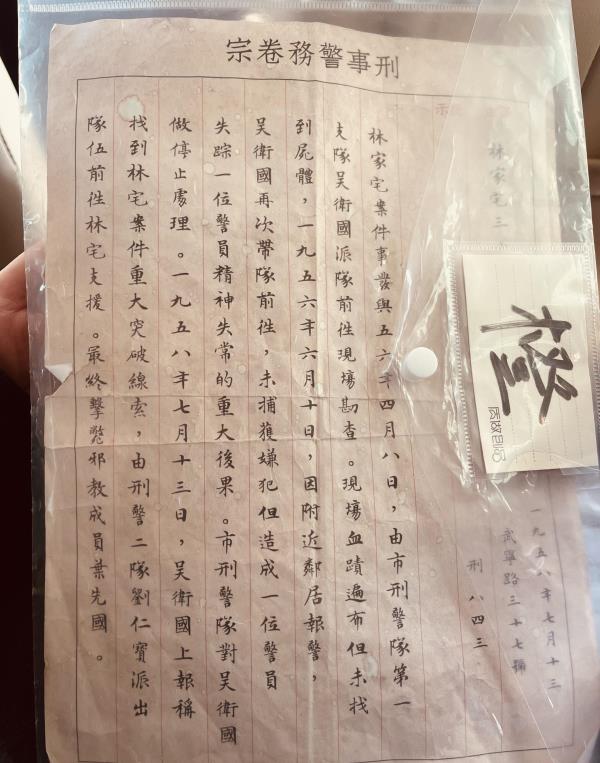 刑事警務卷宗
林家宅三
一九五八年七月十三
武寧路三十七號
刑八四三
林家宅案件事發與五六年四月八日，由市刑警隊第一
支隊吴衛國派隊前徃現場勘查。現場血蹟遍布但未找
到屍體，一九五六年六月十日，因附近鄰居報警，
吴衛國再次帶隊前徃，未捕獲嫌犯但造成一位警員
失踪一位警員精神失常的重大後果。市刑警隊對吴衛國
做停止處理。一九五八年七月十三日，吴衛國上報稱
找到林宅案件重大突破線索，由刑警二隊劉仁寶派出
隊伍前徃林宅支援。最終擊斃邪教成員葉先國。